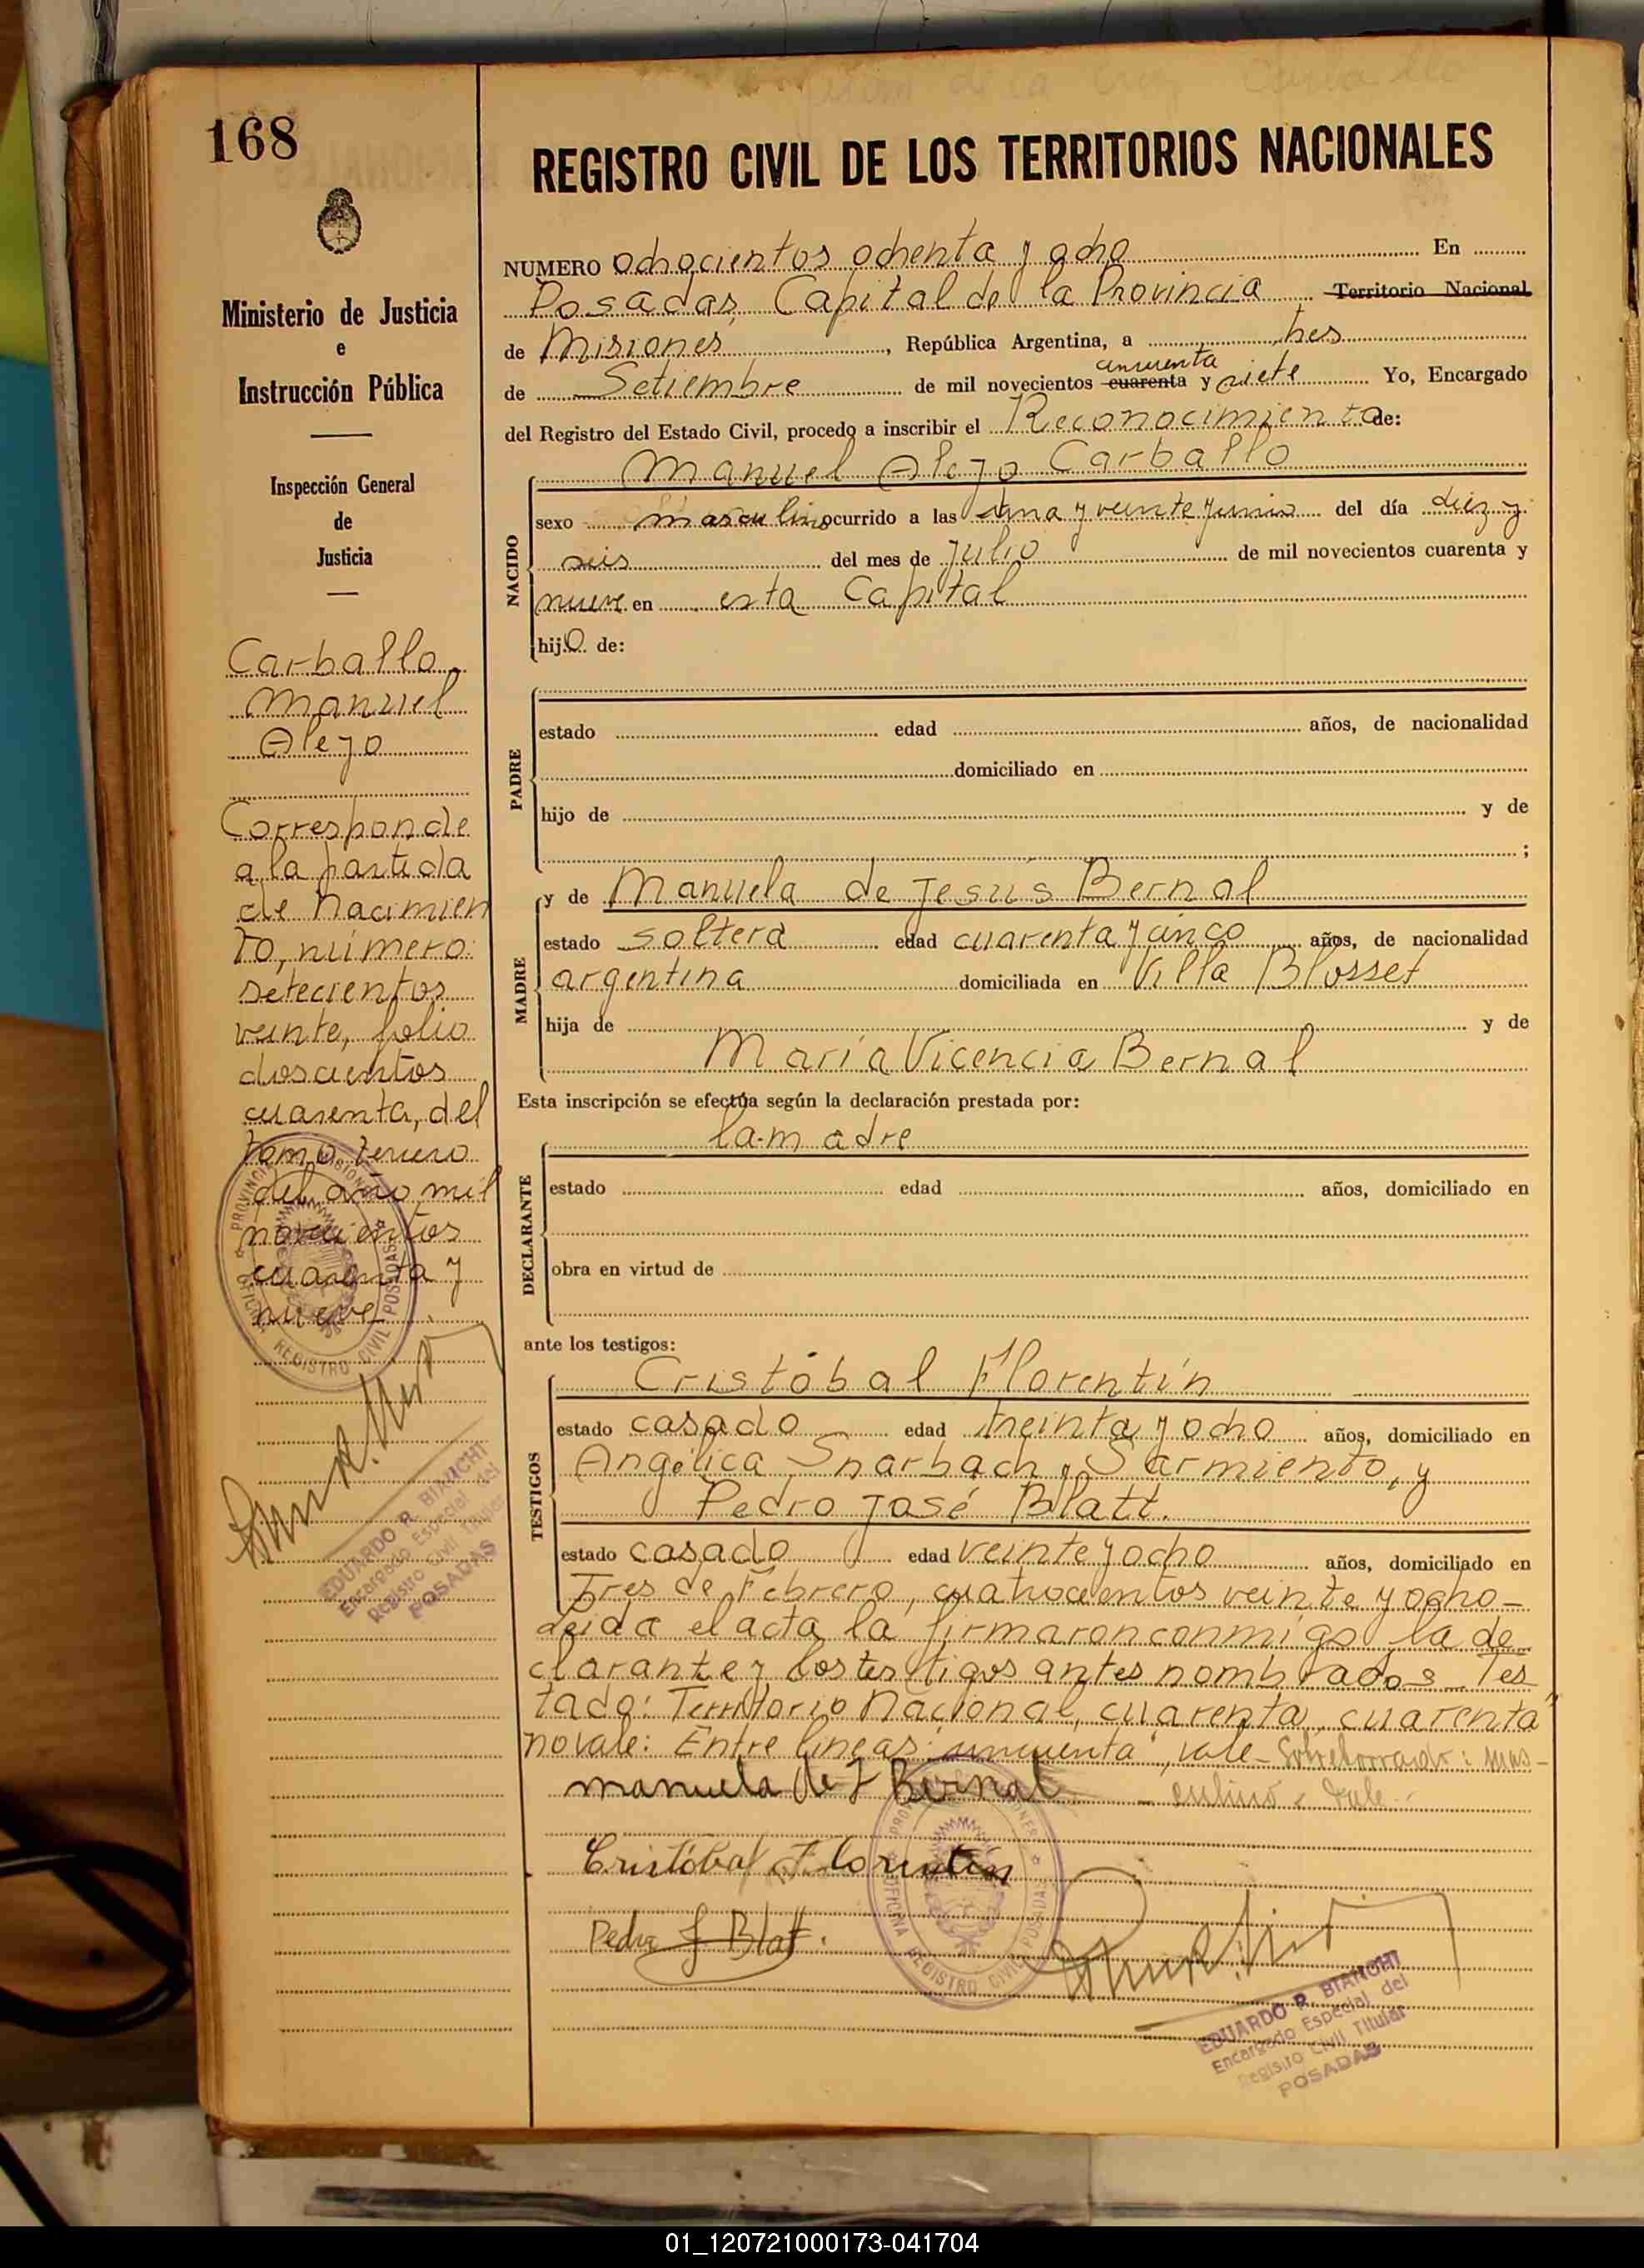 168
REGISTRO CIVIL DE LOS TERRITORIOS NACIONALES
Ministerio de Justicia
e
Instrucción Pública
Inspección General
de
Justicia
Carballo
Manuel
Alejo
Corresponde
a la partida
de nacimien
to, número:
setecientos
veinte, folio
doscientos
cuarenta, del
tomo tercero
del año mil
novecientos
cuarenta y
nueve
PROVINCIA MISIONES
OFICINA REGISTRO CIVIL POSADAS
EDUARDO R. BIANCHI
Encargado Especial del
Registro Civil Titular
POSADAS
NUMERO ochocientos ochenta y ocho En
Posadas, Capital de la Provincia Territorio Nacional
de Misiones, República Argentina, a tres
cincuenta
de Setiembre de mil novecientos cuarenta y siete Yo, Encargado
del Registro del Estado Civil, procedo a inscribir el Reconocimiento de:
Manuel Alejo Carballo
NACIDO
sexo masculino ocurrido a las una y veinte del día diez y
seis del mes de Julio de mil novecientos cuarenta y
nueve en esta Capital
hijo de:
PADRE
estado edad años, de nacionalidad
domiciliado en
hijo de y de
;
MADRE
y de Manuela de Jesús Bernal
estado soltera edad cuarenta y cinco años, de nacionalidad
argentina domiciliada en Villa Blosset
hija de y de
María Vicencia Bernal
Esta inscripción se efectúa según la declaración prestada por:
la madre
DECLARANTE
estado edad años, domiciliado en
obra en virtud de
ante los testigos:
TESTIGOS
Cristóbal Florentín
estado casado edad treinta y ocho años, domiciliado en
Angélica Snarbach y Sarmiento, y
Pedro José Blatt.
estado casado edad veinte y ocho años, domiciliado en
Tres de Febrero, cuatrocientos veinte y ocho-
Leida el acta la firmaron conmigo la de
clarante y los testigos antes nombrados_Tes
tado: Territorio Nacional, cuarenta, cuarenta"
no vale: Entre lineas: cincuenta", vale- Sobreborrado: mas-
manuela de J Bernal - culino - vale-
Cristóbal Florentín
Pedro J Blatt.
PROVINCIA MISIONES
OFICINA REGISTRO CIVIL POSADAS
EDUARDO R. BIANCHI
Encargado Especial del
Registro Civil Titular
POSADAS
01_120721000173-041704